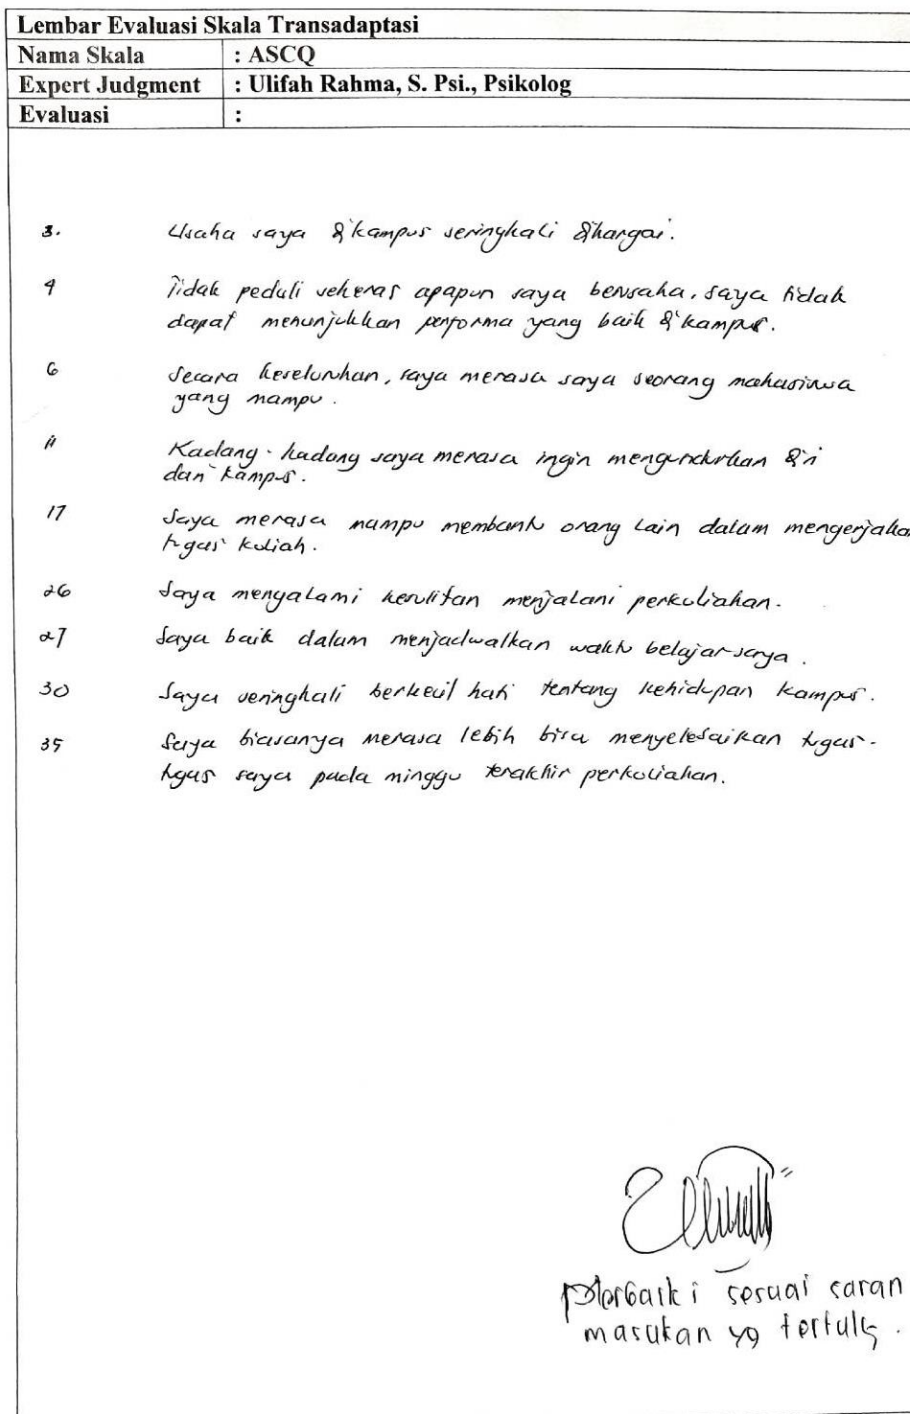 Lembar Evaluasi Skala Transadaptasi
Nama Skala : ASCQ
Expert Judgment : Ulifah Rahma, S. Psi., Psikolog
Evaluasi :
3. Usaha saya di kampus seringkali dihargai.
4 Tidak peduli sekeras apapun saya berusaha, saya tidak
dapat menunjukkan performa yang baik di kampus.
6 Secara keseluruhan, saya merasa saya seorang mahasiswa
yang mampu.
11 Kadang-kadang saya merasa ingin mengundurkan diri
dari kampus.
17 Saya merasa mampu membantu orang lain dalam mengerjakan
tugas kuliah.
26 Saya mengalami kesulitan menjalani perkuliahan.
27 Saya baik dalam menjadwalkan waktu belajar saya.
30 Saya seringkali berkecil hati tentang kehidupan kampus.
35 Saya biasanya merasa lebih bisa menyelesaikan tugas-
tugas saya pada minggu terakhir perkuliahan.
Diperbaiki sesuai saran
masukan yg tertulis.